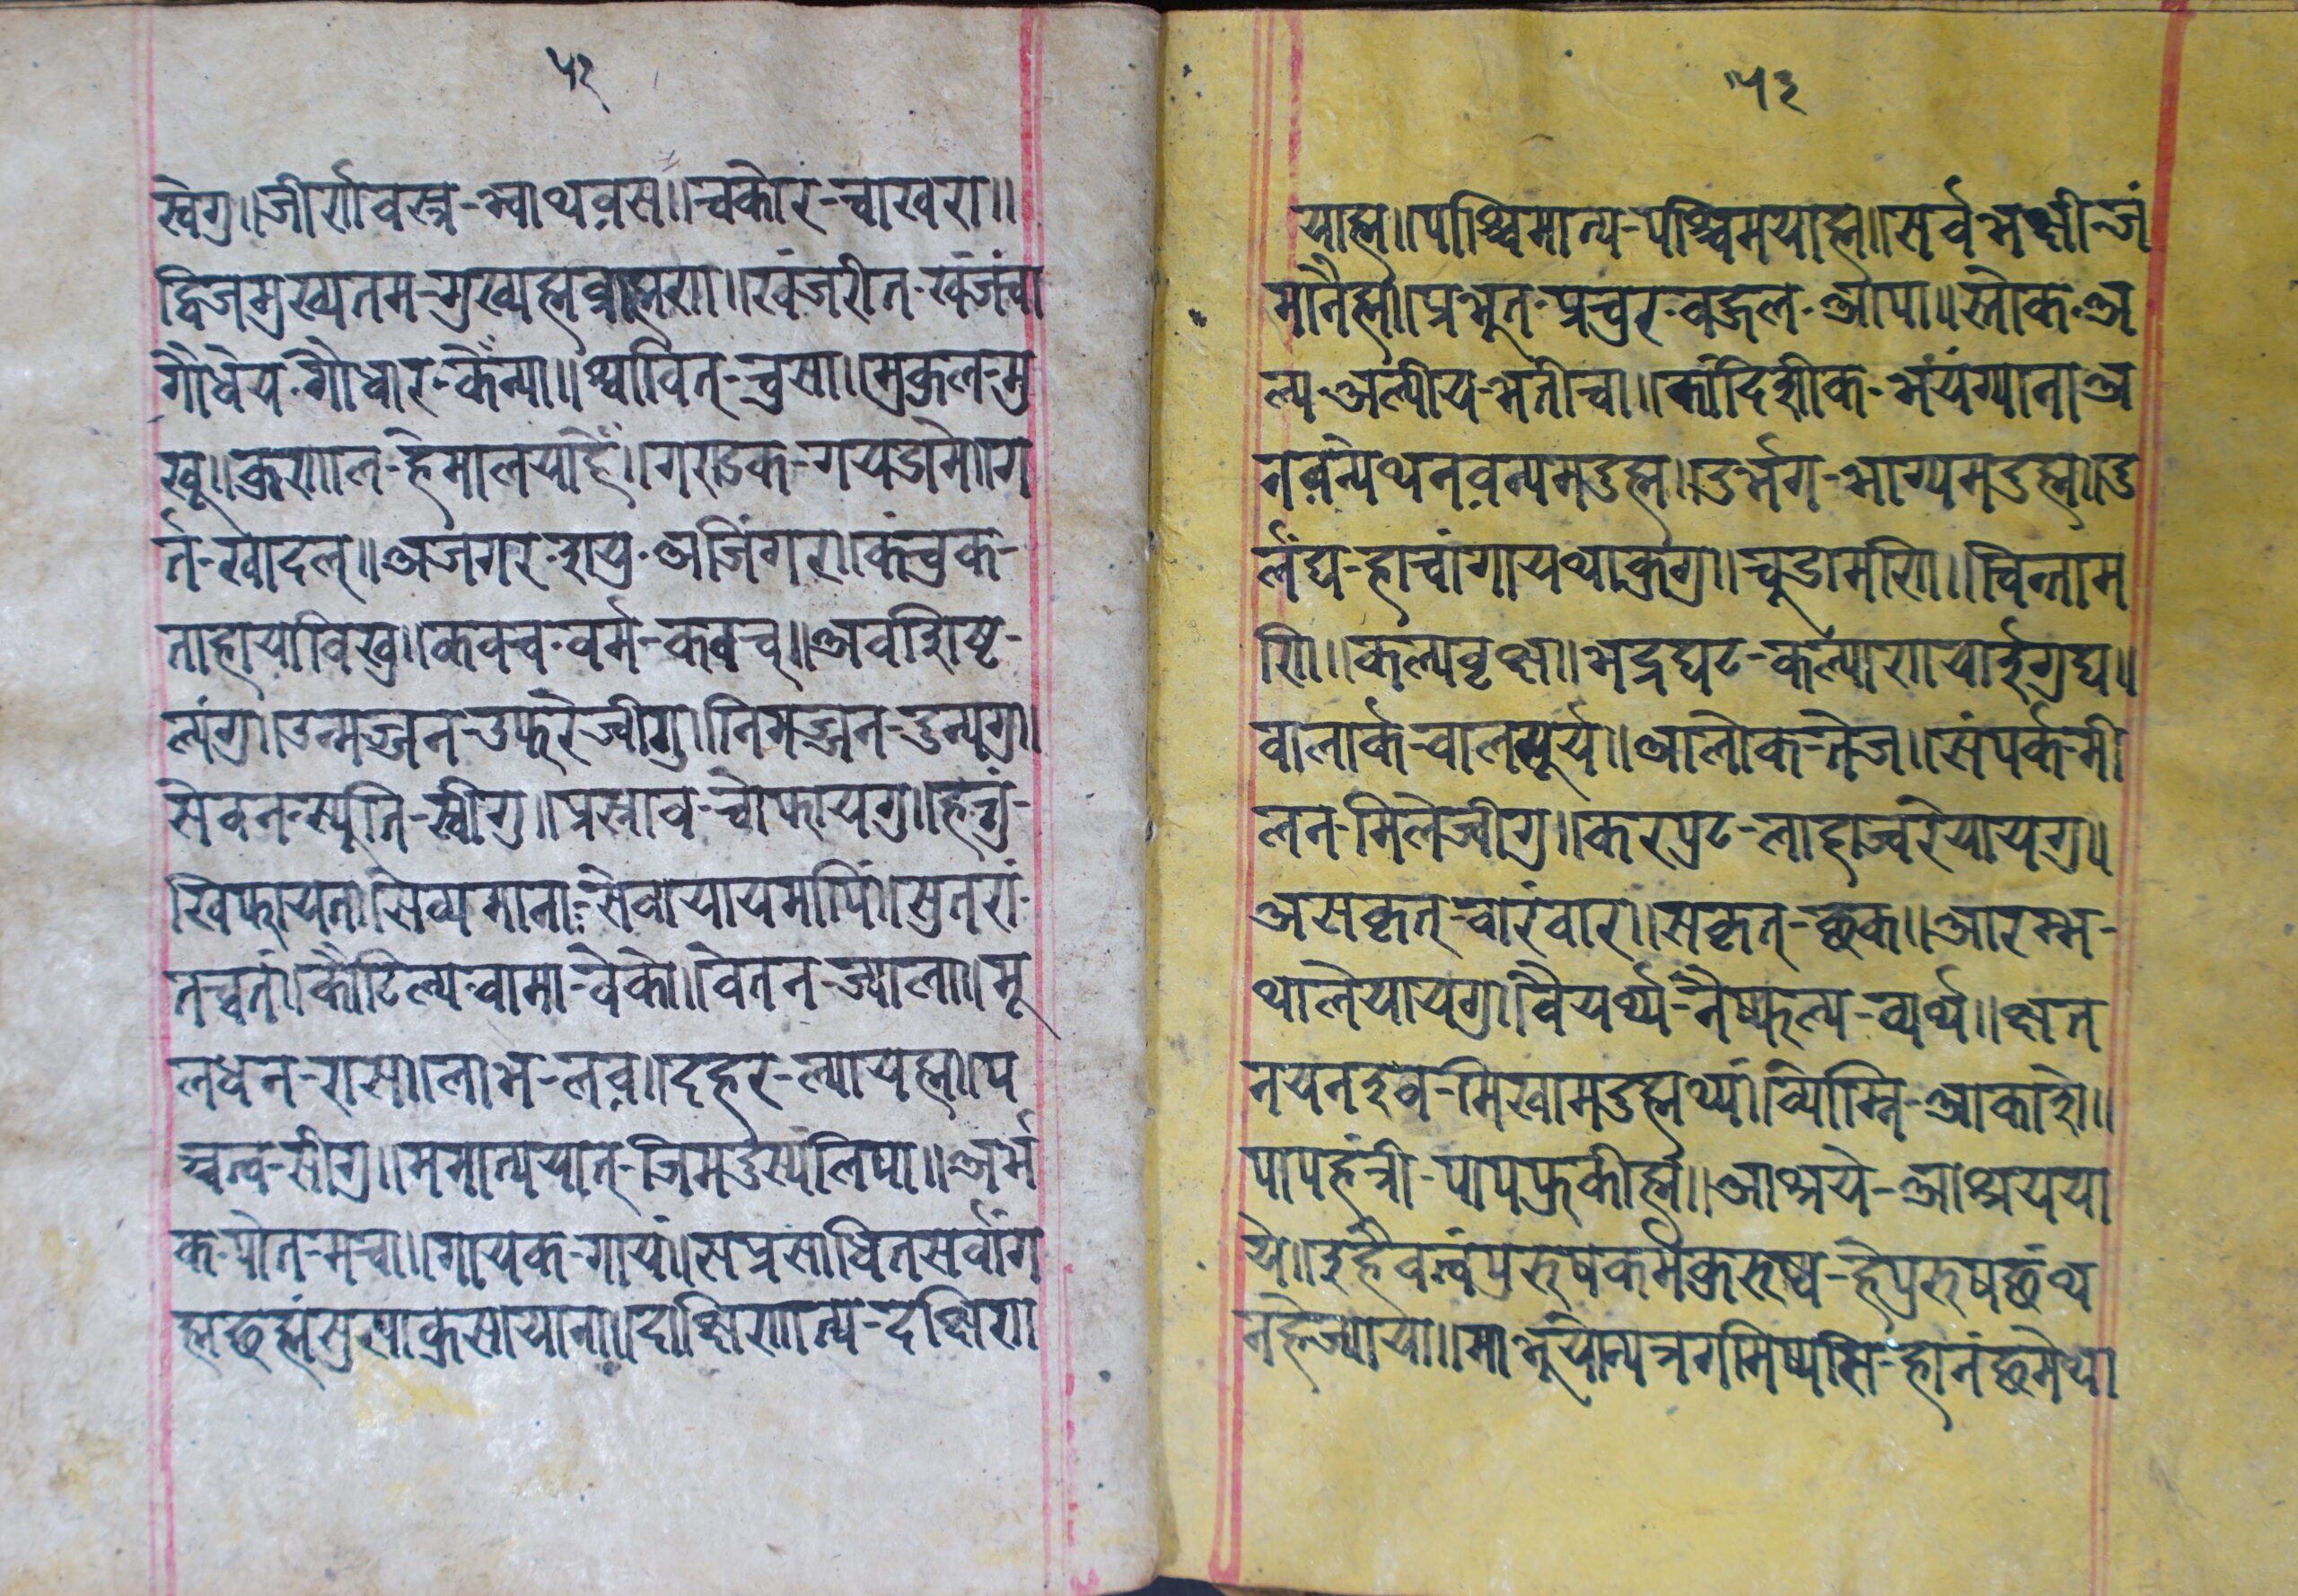 ५२
स्वेगु॥जीर्णवस्त्र-भ्वाथवस॥चकोर-चाखरा॥
द्विजमुख्यतम-मुख्यह्मब्राह्मण॥खंजरीत-खंजंचा
गौधेय-गौधार-कैंन्या॥श्वावित्-चुसा॥मुकुल-मु
खू॥कुणाल-हेमालयाहँ॥गण्डक-गयडामे॥ग
र्त-खादल्॥अजगर-शयु-अजिंगर॥कंचुक-
ताहायाविखु॥कवच-वर्म-कवच्॥अवशिष्ट-
ल्यंगु॥उन्मज्जन-उफरेज्वीगु॥निमज्जन-दुन्यगु॥
सेवन-स्युति-स्वीगु॥प्रस्राव-चोफायगु॥हत्तुं-
खिफायत॥सेव्यमानाः-सेवायायमापिं॥सुतरां-
तच्वतं॥कौटिल्य-वामा-वेको॥वेतन-ज्याला॥मू
लधन-रास॥लाभ-लव॥दहर-ल्यायह्म॥प
ञ्चत्व-सीगु॥ममात्ययात्-जिमदुस्यंलिपा॥अर्भ
क-पोत-मचा॥गायक-गायं॥सप्रसाधितसर्वांग
ह्मछह्मंसुखाकुसायाना॥दाक्षिणात्य-दक्षिण
५३
याह्म॥पाश्चिमात्य-पश्चिमयाह्म॥सर्वभक्षी-ज
मानैह्म॥प्रभूत-प्रचुर-वहुल-आपा॥स्तोक-अ
ल्प-अल्पीय-भतीचा॥कांदिशीक-भंयंग्याना॥अ
नवन्यथनवन्यमदुह्म॥दुर्भग-भाग्यमदुह्म॥दु
र्लंघ्य-हाचांगायथाकुगु॥चूडामणि॥चिन्ताम
णि॥कल्पवृक्ष॥भद्रघट-कल्याणयाईगुघ॥
वालार्क-वालसूर्य॥आलोक-तेज॥संपर्क-मी
लन-मिलेज्वीगु॥करपुट-लाहाज्वरेयायगु॥
असकृत्-वारंवार॥सकृत्-छक॥आरम्भ-
थालेयायगु॥वैयर्थ्य-नैष्फल्य-व्यर्थ॥क्षत
नयनइव-मिखामदुह्मथ्यं॥व्योम्नि-आकाशे॥
पापहंत्री-पापफुकीह्म॥आश्रये-आश्रयया
य॥इहैवत्वंपुरुषकर्मकुरुष्व-हेपुरुषछंथ
नहेज्याया॥माभूयोन्यत्रगमिष्यसि-हानंछमेथा